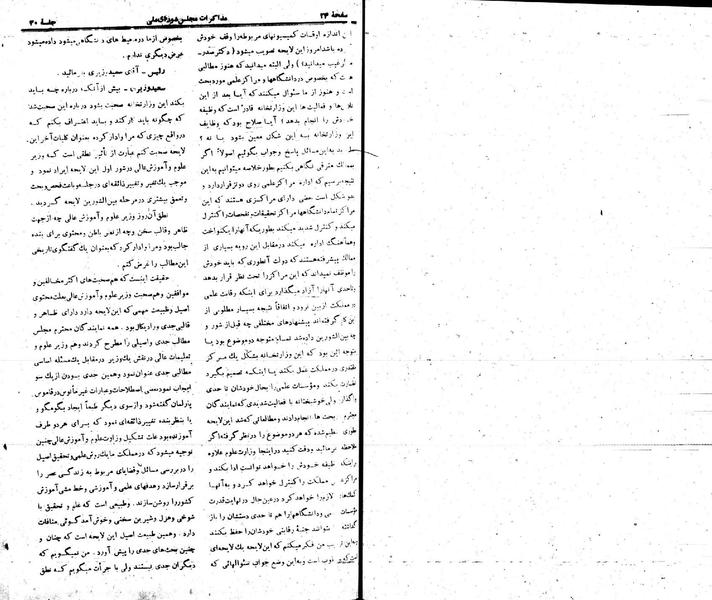 صفحهٔ ۲۴ مذاکرات مجلس شورای ملی جلسهٔ ۳۰
این اندازه اوقات کمیسیونهای مربوطه را وقف خودش
کرده باشد امروز این لایحه تصویب میشود (دکتر صدر-
غیب میدانید) ولی البته میدانید که هنوز مطالبی
هست که بخصوص در دانشگاهها و مراکز علمی مورد بحث
است و هنوز از ما سئوال میکنند که آیا بعد از این
و فعالیت ها این وزارتخانه قادر است که وظیفه
خودش را انجام بدهد؟ آیا صلاح بود که وظایف
این وزارتخانه به این شکل معین بشود یا نه؟
به این مسائل پاسخ و جواب بگوئیم اصولا اگر
مترقی نگاهی بکنیم بطور خلاصه میتوانیم به این
نتیجه برسیم که اداره مراکز علمی روی دو اثر قرار دارد و
دو شکل است بعضی دارای مراکزی هستند که این
مراکز تمام دانشگاهها مراکز تحقیقات و تفحصات را کنترل
میکند و کنترل شدید میکند بطوریکه آنها را یکنواخت
و هماهنگ اداره میکند در مقابل این رویه بسیاری از
ممالک پیشرفته هستند که دولت آنطوری که باید خودش
را موظف نمیداند که این مراکز را تحت نظر قرار بدهد
و تا حدی آنها را آزاد میگذارد برای اینکه رقابت علمی
در مملکت از بین نرود و اتفاقا نتیجه بسیار مطلوبی از
این کار گرفته اند پیشنهادهای مختلفی چه قبل از شور و
چه بین الشورین داده شد تماما متوجه دو موضوع بود یا
متوجه این بود که این وزارتخانه بشکل یک مرکز
مقتدری در مملکت عمل بکند یا اینکه تصمیم بگیرد
نظارت بکند و مؤسسات علمی را بحال خودشان تا حدی
واگذار ولی خوشبختانه با فعالیت شدیدی که نمایندگان
محترم بحث ها انجام دادند و مطالعاتی که شد این لایحه
طوری تنظیم شده که هر دو موضوع را در نظر گرفته اگر
ملاحظه بفرمائید و دقت کنید در اینجا وزارت علوم علاوه
براینکه وظیفه خودش را خواهد توانست ادا بکند و
مراکز مملکت را کنترل خواهد کرد و به آنها
کمک‌های لازم را خواهد کرد در عین حال در نهایت قدرت
مؤسسات و دانشگاهها را هم تا حدی دستشان را باز
گذاشته میتوانند جنبه رقابتی خودشان را حفظ بکنند
به این ترتیب من فکر میکنم که این لایحه یک لایحه‌ای
خوب است و به این وضع جواب سئوالهائی که
بخصوص از ما در محیط های دانشگاهی میشود داده میشود
عرض دیگری ندارم.
رئیس- آقای سعید وزیری بفرمائید.
سعید وزیری- بیش از آنکه درباره چه باید
بکند این وزارتخانه صحبت بشود درباره این صحبت شد
که چگونه باید کار کند و بباید اعتراف بکنم که
در واقع چیزی که مرا وادار کرده بعنوان کلیات آخر این
لایحه صحبت کنم عبارت از تأثیر نطقی است که وزیر
علوم و آموزش عالی در شور اول این لایحه ایراد نمود و
موجب یک تغییر و تغییر ذائقه‌ای در جلسه و باعث فحص و بحث
و تعمق بیشتری در مرحله بین الشورین لایحه گردید.
نطق آن روز وزیر علوم و آموزش عالی چه از جهت
ظاهر و قالب سخن و چه از نظر باطن و محتوی برای بنده
جالب بود و مرا وادار کرد که بعنوان یک گفتگوی تاریخی
این مطالب را عرض کنم.
حقیقت اینست که هم صحبت‌های اکثر مخالفین و
موافقین و هم صحبت وزیر علوم و آموزش عالی بعلت محتوی
اصیل و طبیعت مهمی که این لایحه دارد دارای ظاهر و
قالبی جدی و رادیکال بود. همه نمایندگان محترم مجلس
مطالب جدی و اصیلی را مطرح کردند و هم وزیر علوم و
تعلیمات عالی در نقش یک وزیر در مقابل یک مسئله اساسی
مطالبی جدی عنوان نمود و همین جدی بودن از یک سو
ایجاب نمود بعضی اصطلاحات و عبارات غیر مأنوس در قاموس
پارلمان گفته شود و از سوی دیگر طبعاً ایجاد بگومگو و
یا بنظر بنده تغییر ذائقه‌ای نمود که برای هر دو طرف
آموزنده بود علت تشکیل وزارت علوم و آموزش عالی چنین
توجیه میشود که در مملکت ما یک روش علمی و تحقیق اصیل
را در بررسی مسائل و قضایای مربوط به زندگی عصر را
برقرار سازد و هدفهای علمی و آموزشی و خط مشی آموزش
کشور را روشن سازند. و طبیعی است که علم و تحقیق با
شوخی و هزل و شیرین سخنی و خوش آمد گوئی منافات
دارد. و همین طبیعت اصیل این لایحه است که چنان و
چنین بحث‌های جدی را پیش آورد. من نمیگویم که
دیگران جدی نبستند ولی با جرأت میگویم که نطق